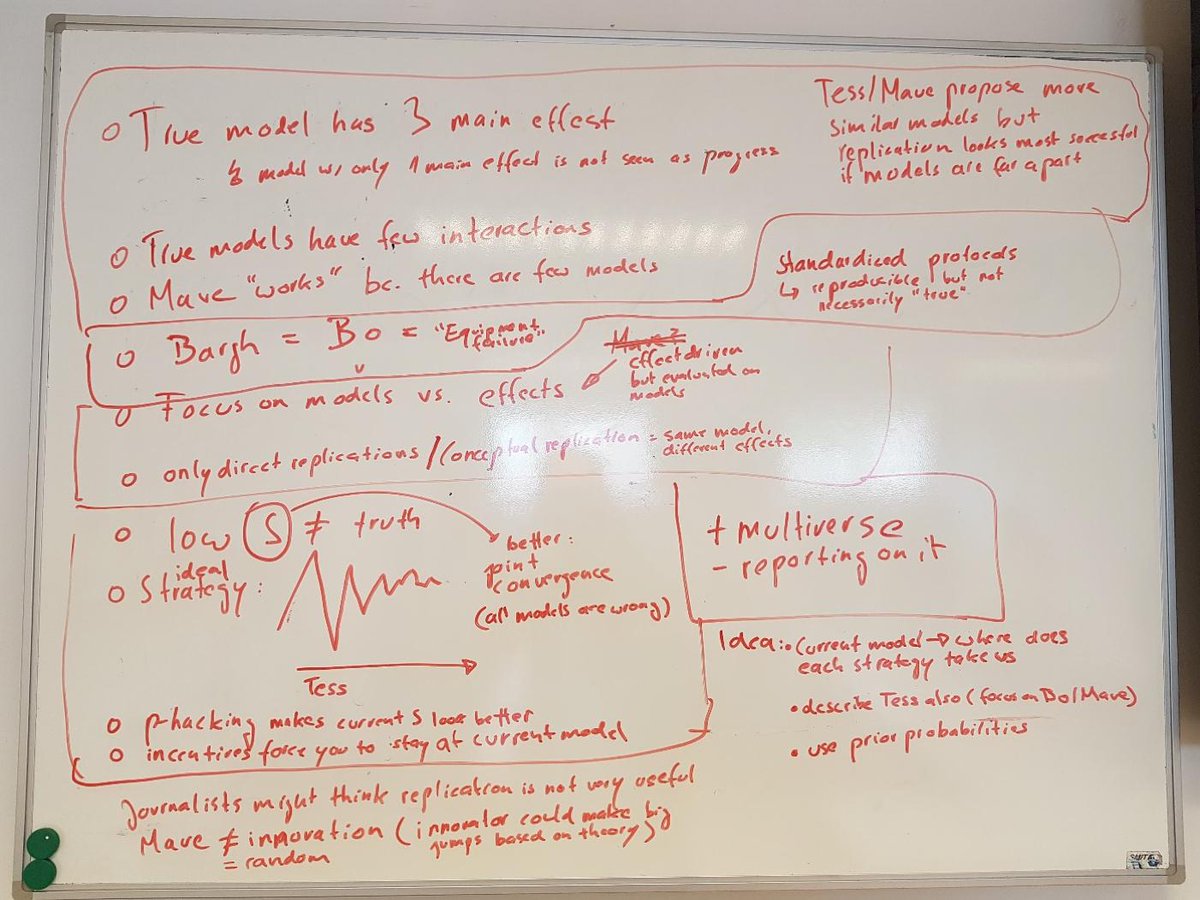 o True model has 3 main effect
↳ model w/ only 1 main effect is not seen as progress
Tess/Mave propose more
similar models but
replication looks most succesful
if models are far apart
o True models have few interactions
o Mave "works" bc. there are few models
Standardized protocols
↳ reproducible, but not
necessarily "true"
o Bargh = Bo = "Equipment
failure"
o Focus on models vs. effects
Mave?
effect driven
but evaluated on
models
o only direct replications / Conceptual replication = same model,
different effects
o low S ≠ truth
better:
point
convergence
(all models are wrong)
o ideal
Strategy:
Tess
o p-hacking makes current S look better
o incentives force you to stay at current model
+ multiverse
- reporting on it
Idea: • Current model → where does
each strategy take us
• describe Tess also (focus on Bo/Mave)
• use prior probabilities
Journalists might think replication is not very useful
Mave ≠ innovation (innovator could make big
jumps based on theory)
= random